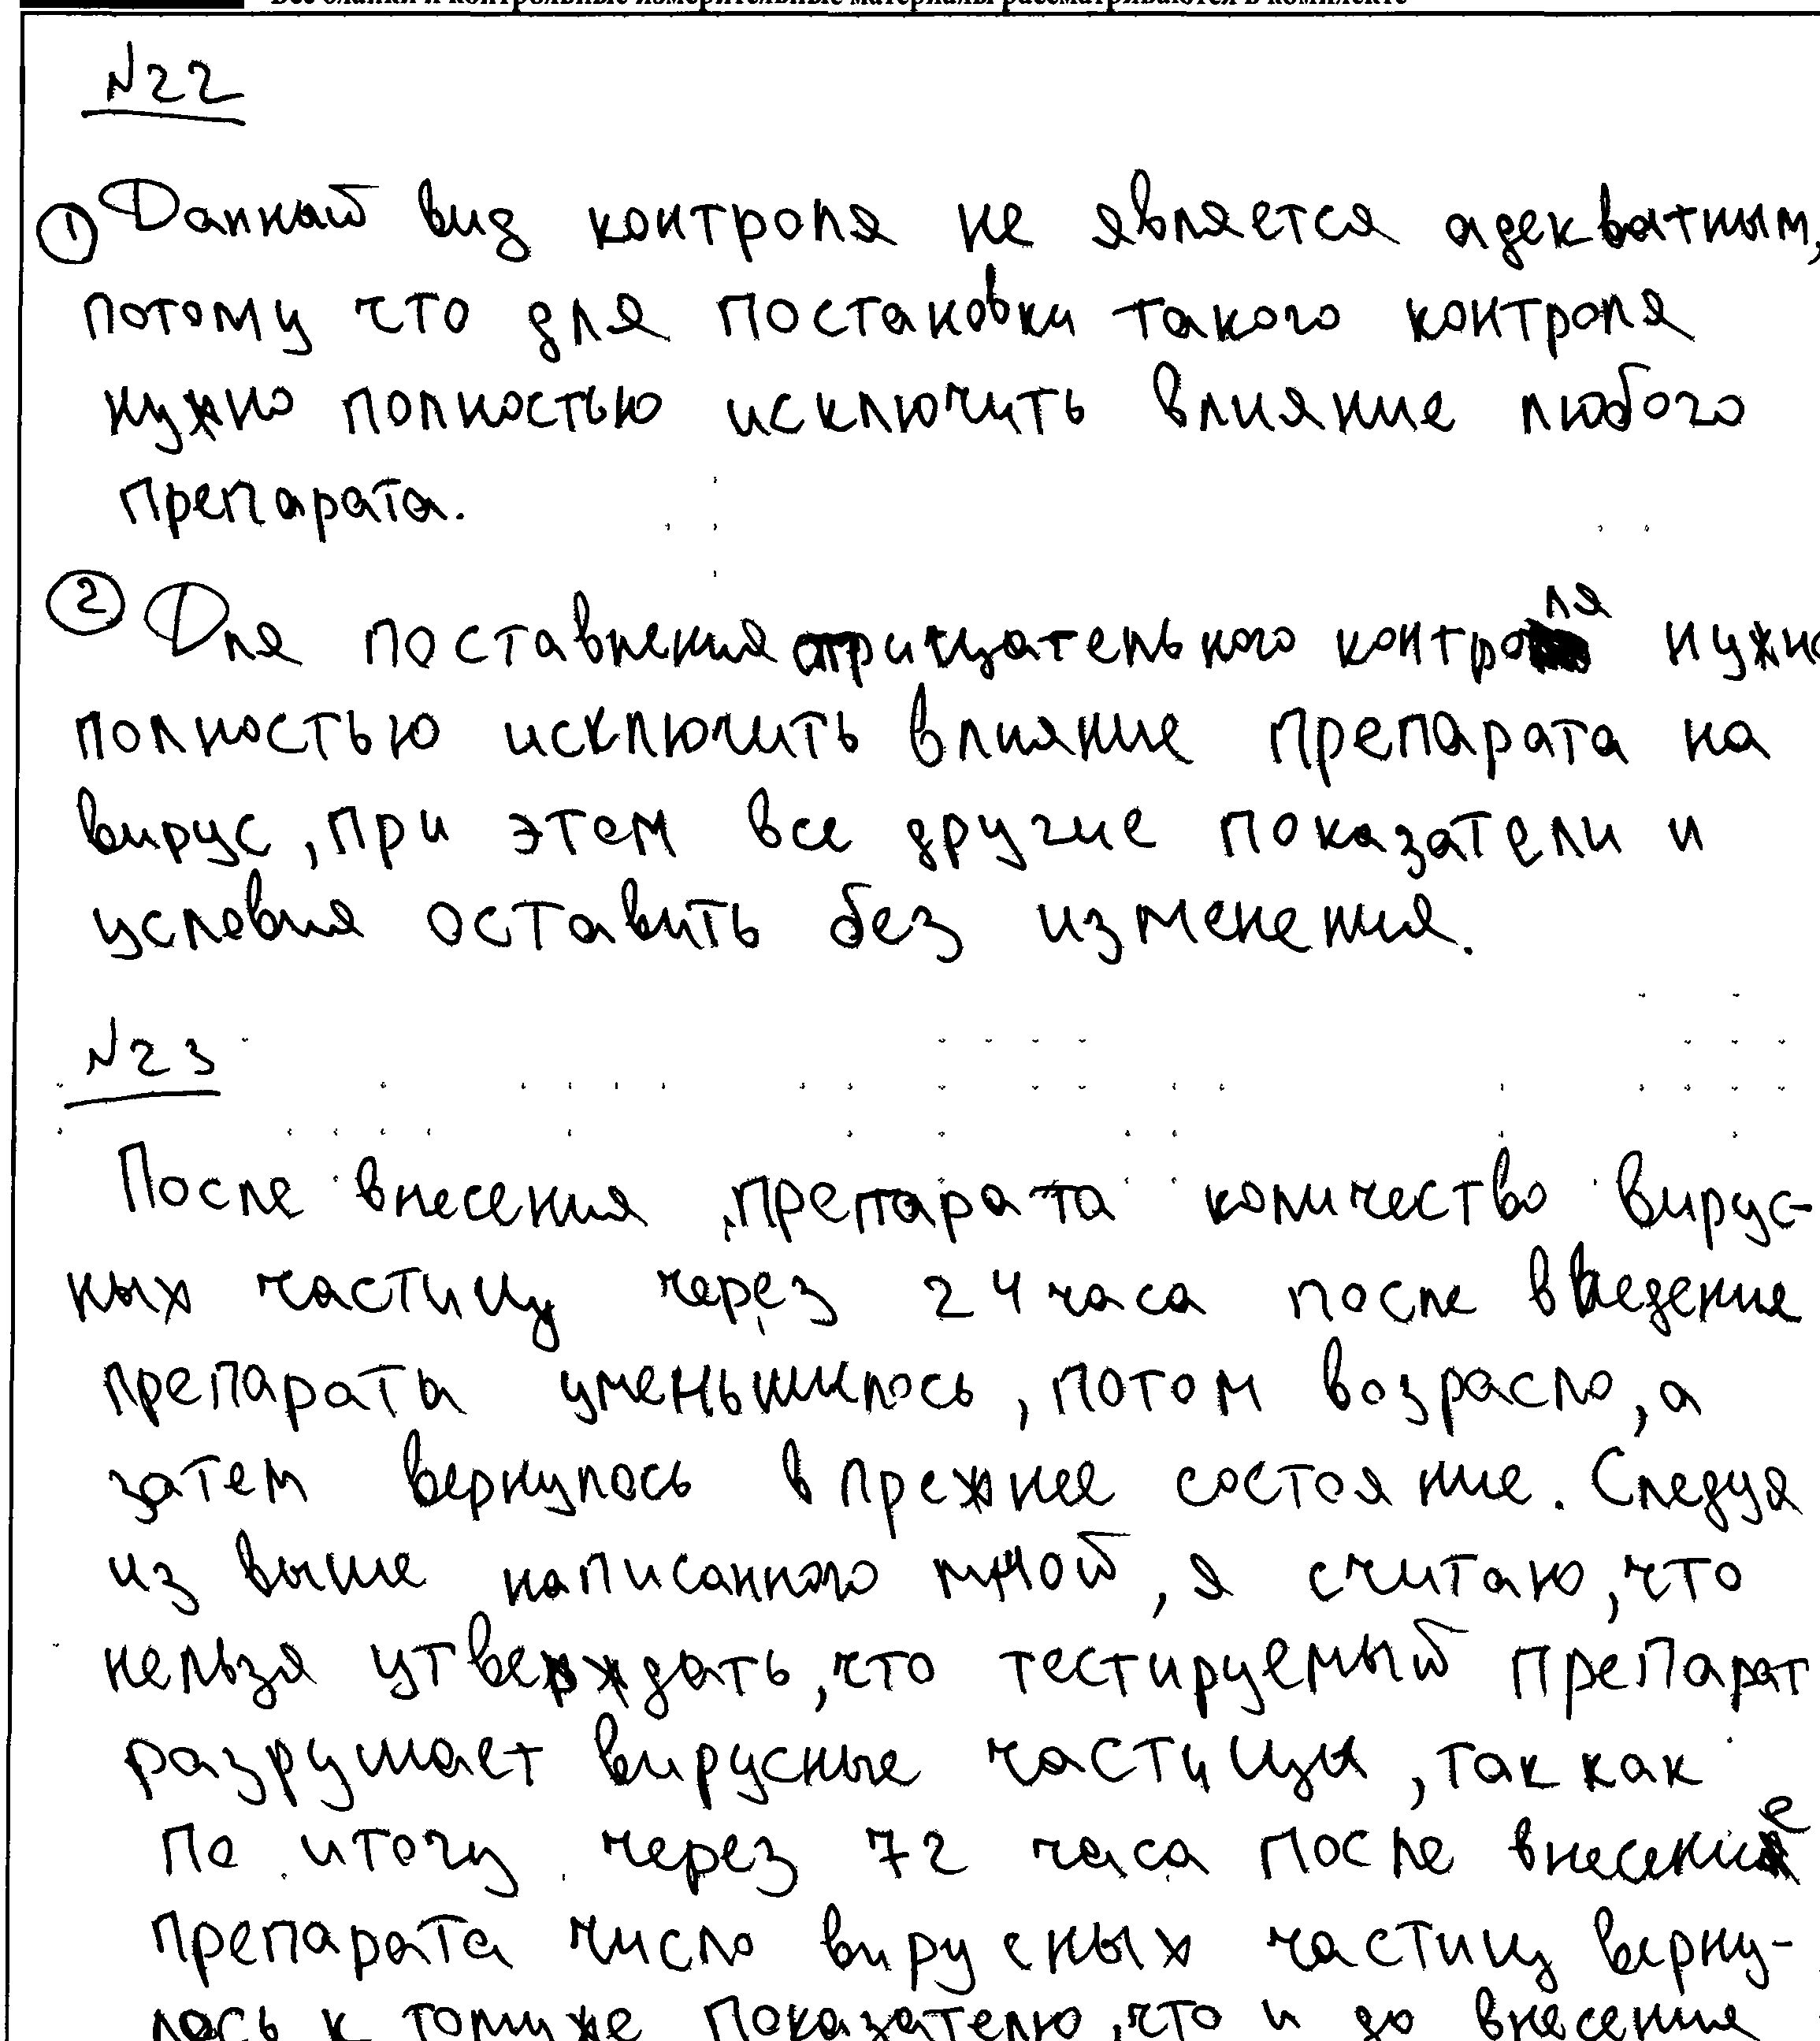 Все бланки и контрольные измерительные материалы рассматриваются в комплекте
№22
① Данный вид контроля не является адекватным,
потому что для постановки такого контроля
нужно полностью исключить влияние любого
препарата.
② Для поставления отрицательного контроля нужно
полностью исключить влияние препарата на
вирус, при этом все другие показатели и
условия оставить без изменения.
№23
После внесения препарата количество вирус-
ных частиц через 24 часа после введение
препарата уменьшилось, потом возрасло, а
затем вернулось в прежнее состояние. Следуя
из выше написанного мной, я считаю, что
нельзя утверждать, что тестируемый препарат
разрушает вирусные частицы, так как
по итогу через 72 часа после внесение
препарата число вирусных частиц верну-
лось к тому же показателю, что и до внесения